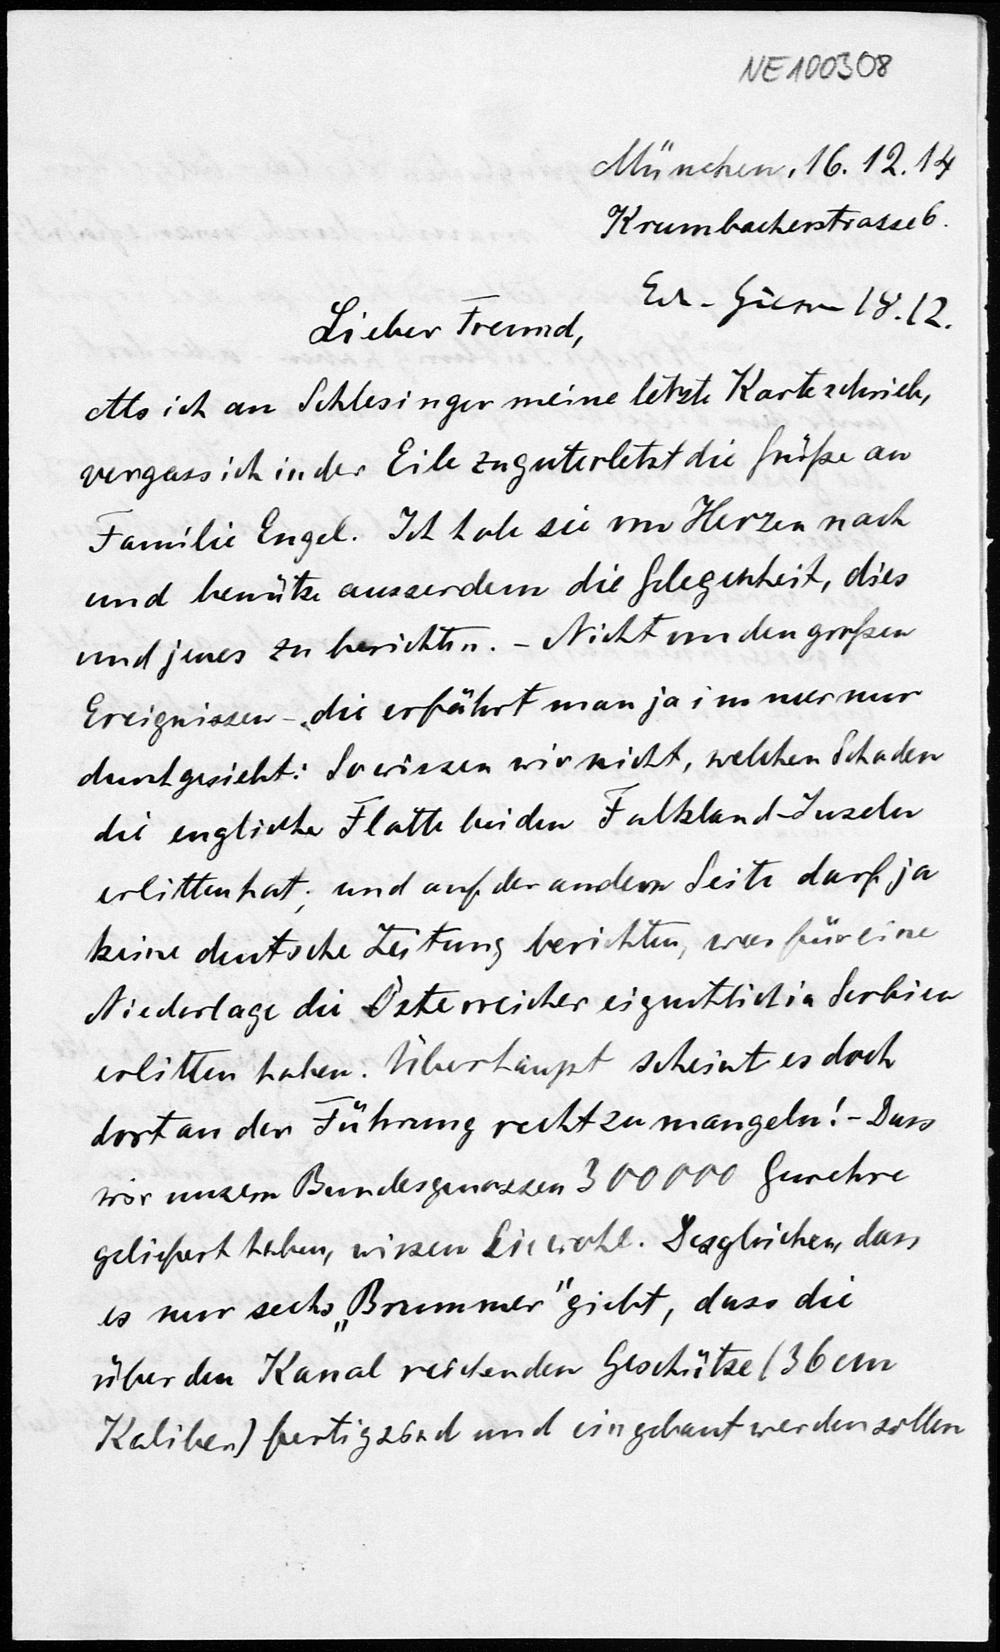 NE100308
München, 16.12.14
Krumbacherstrasse 6.
18.12.
Lieber Freund,
Als ich an Schlesinger meine letzte Karte schrieb,
vergass ich in der Eile zuguterletzt die Grüße an
Familie Engel. Ich hole sie von Herzen nach
und benütze ausserdem die Gelegenheit, dies
und jenes zu berichten. – Nicht von den großen
Ereignissen – die erfährt man ja immer nur
durchgesiebt: So wissen wir nicht, welchen Schaden
die englische Flotte bei den Falkland-Inseln
erlitten hat; und auf der andern Seite darf ja
keine deutsche Zeitung berichten, was für eine
Niederlage die Österreicher eigentlich in Serbien
erlitten haben. Überhaupt scheint es doch
dort an der Führung recht zu mangeln! – Dass
wir unsern Bundesgenossen 300000 Gewehre
geliefert haben, wissen Sie wohl. Desgleichen, dass
es nur sechs „Brummer" giebt, dass die
über den Kanal reichenden Geschütze (36 cm
Kaliber) fertig sind und eingebaut werden sollen